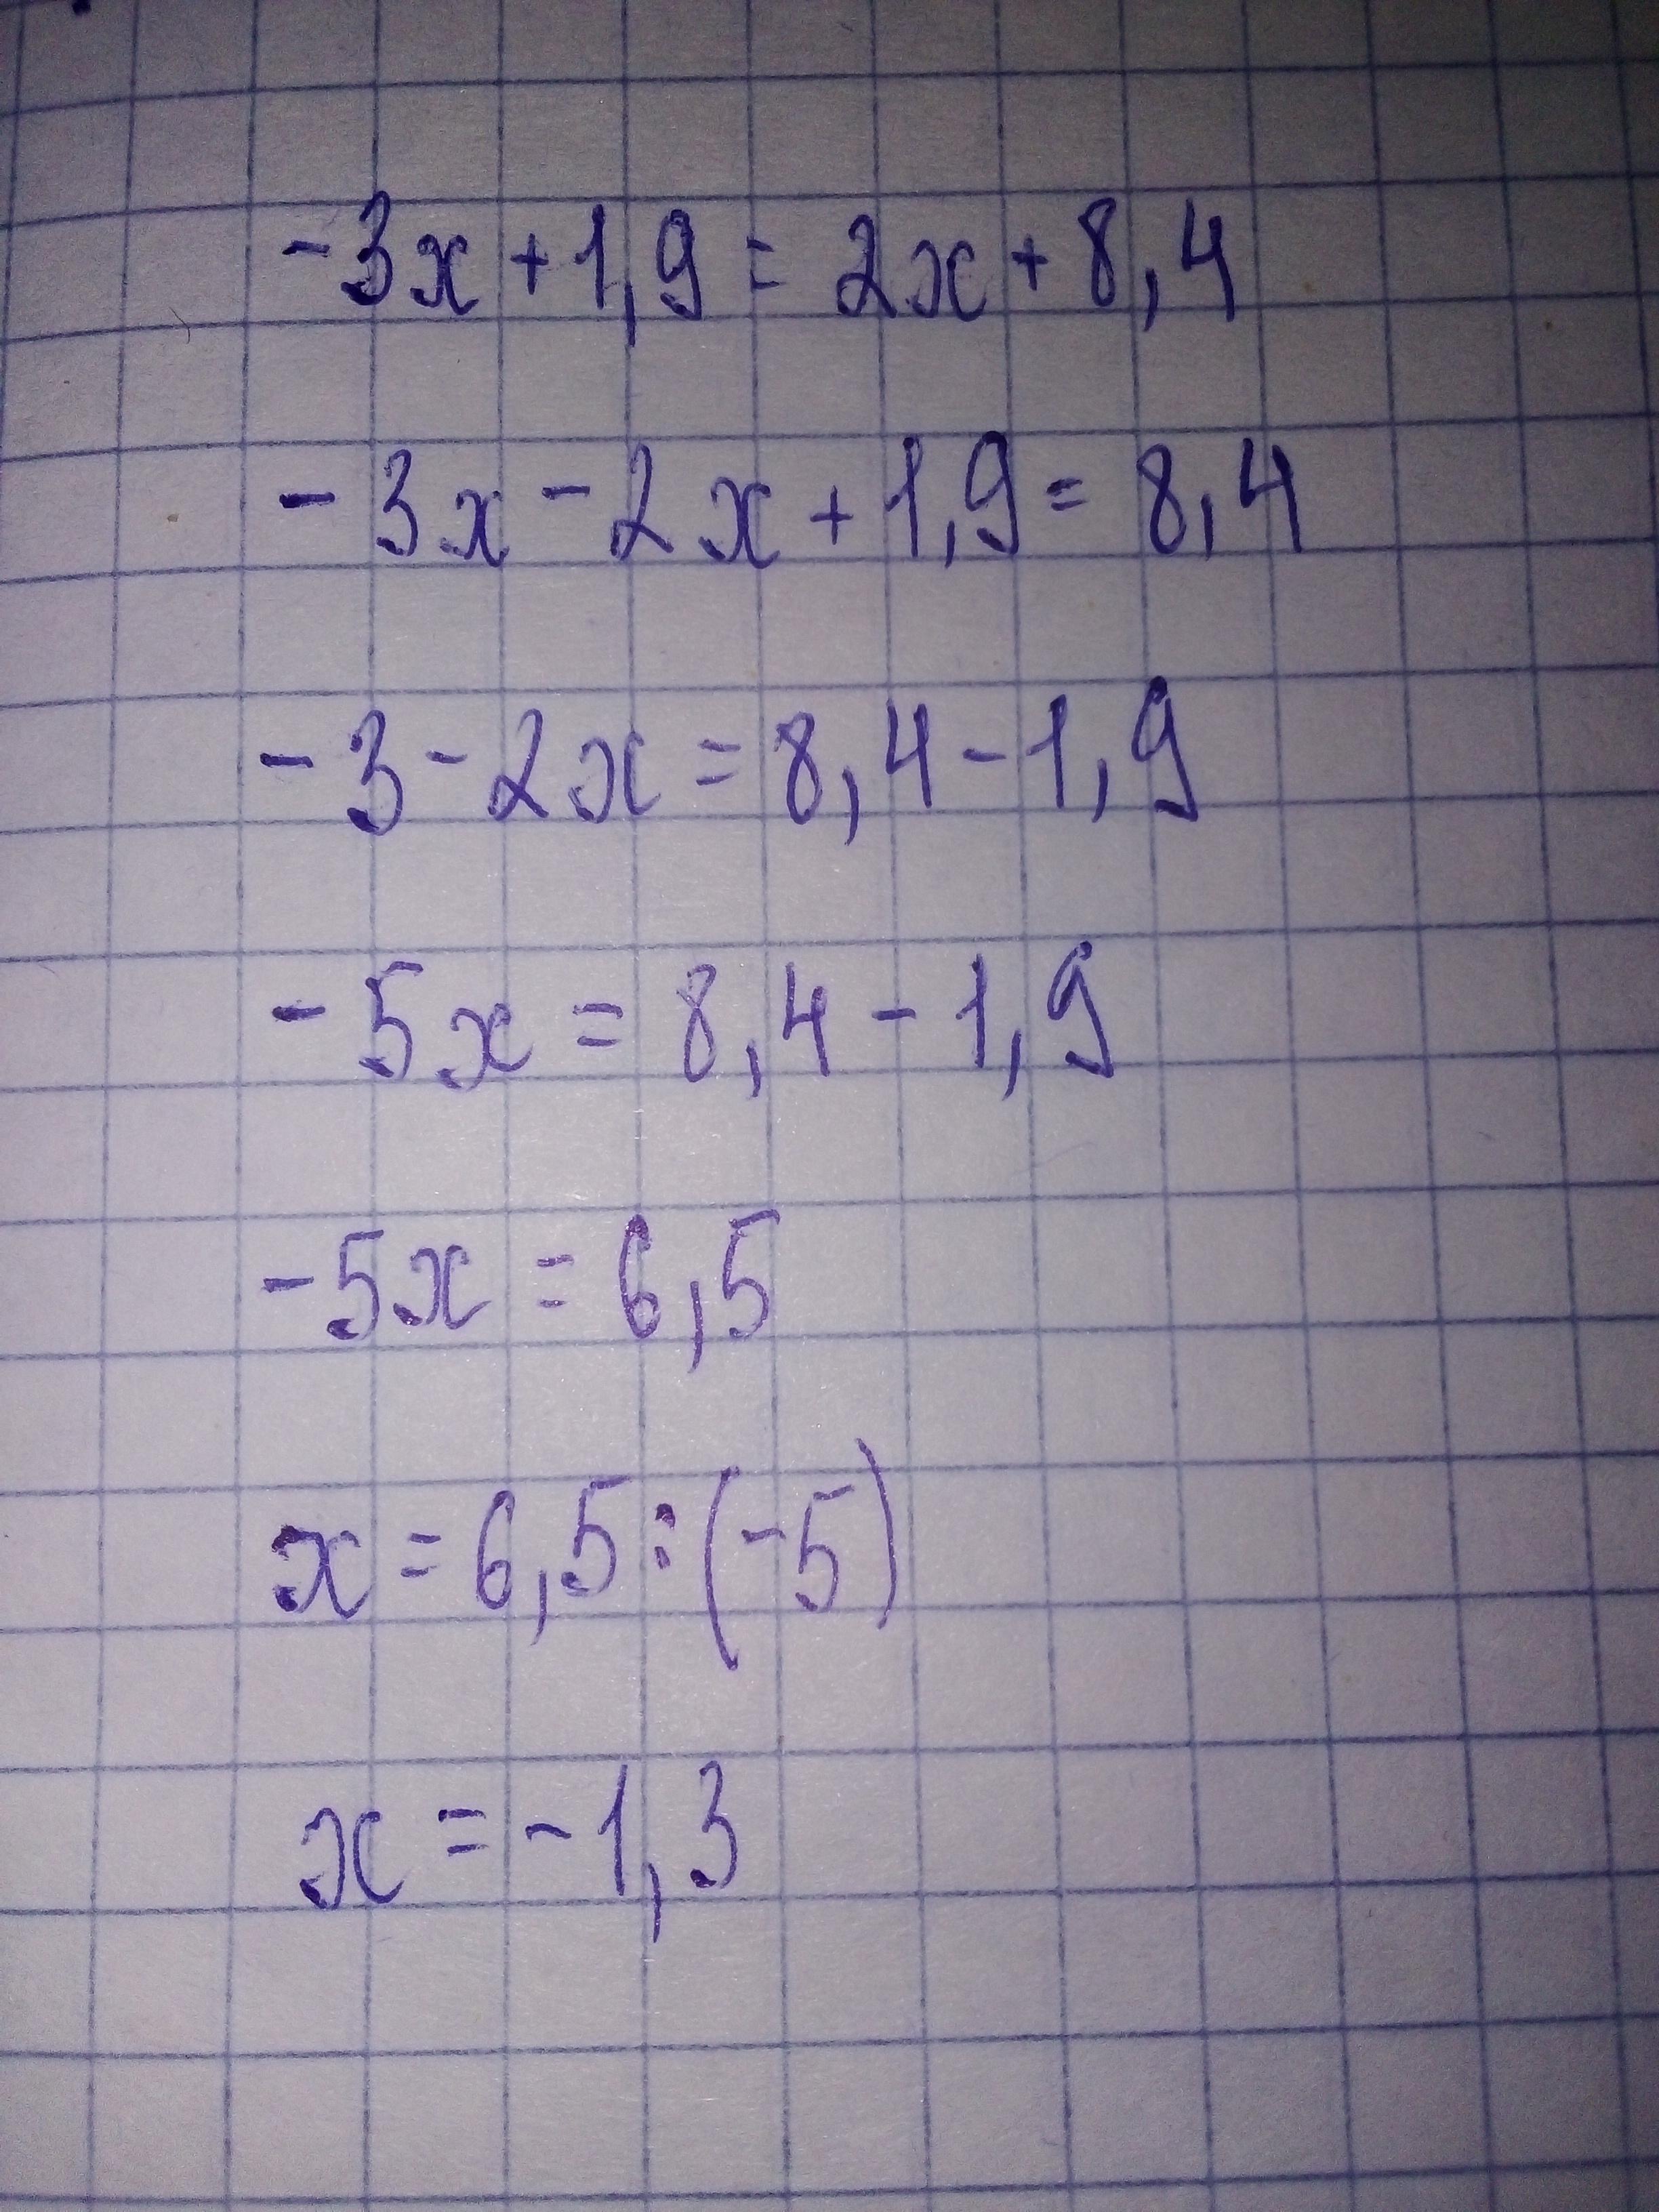 -3x+1,9=2x+8,4
-3x-2x+1,9=8,4
-3-2x=8,4-1,9
-5x=8,4-1,9
-5x=6,5
x=6,5:(-5)
x=-1,3